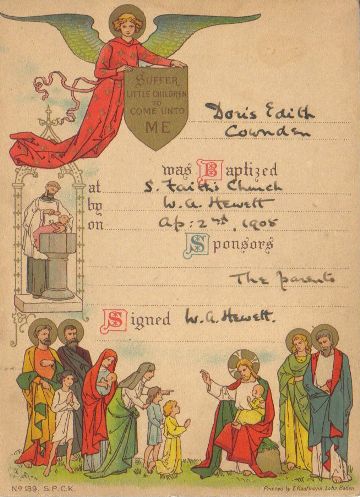 SUFFER
LITTLE CHILDREN
TO
COME UNTO
ME
Doris Edith
Cownden
was Baptized
at S. Faith's Church
by W. A. Hewett
on Ap: 2nd, 1905
Sponsors
The parents
Signed W. A. Hewett.
No 139. S.P.C.K.
Printed by E. Kaufmann, Lahr, Baden.